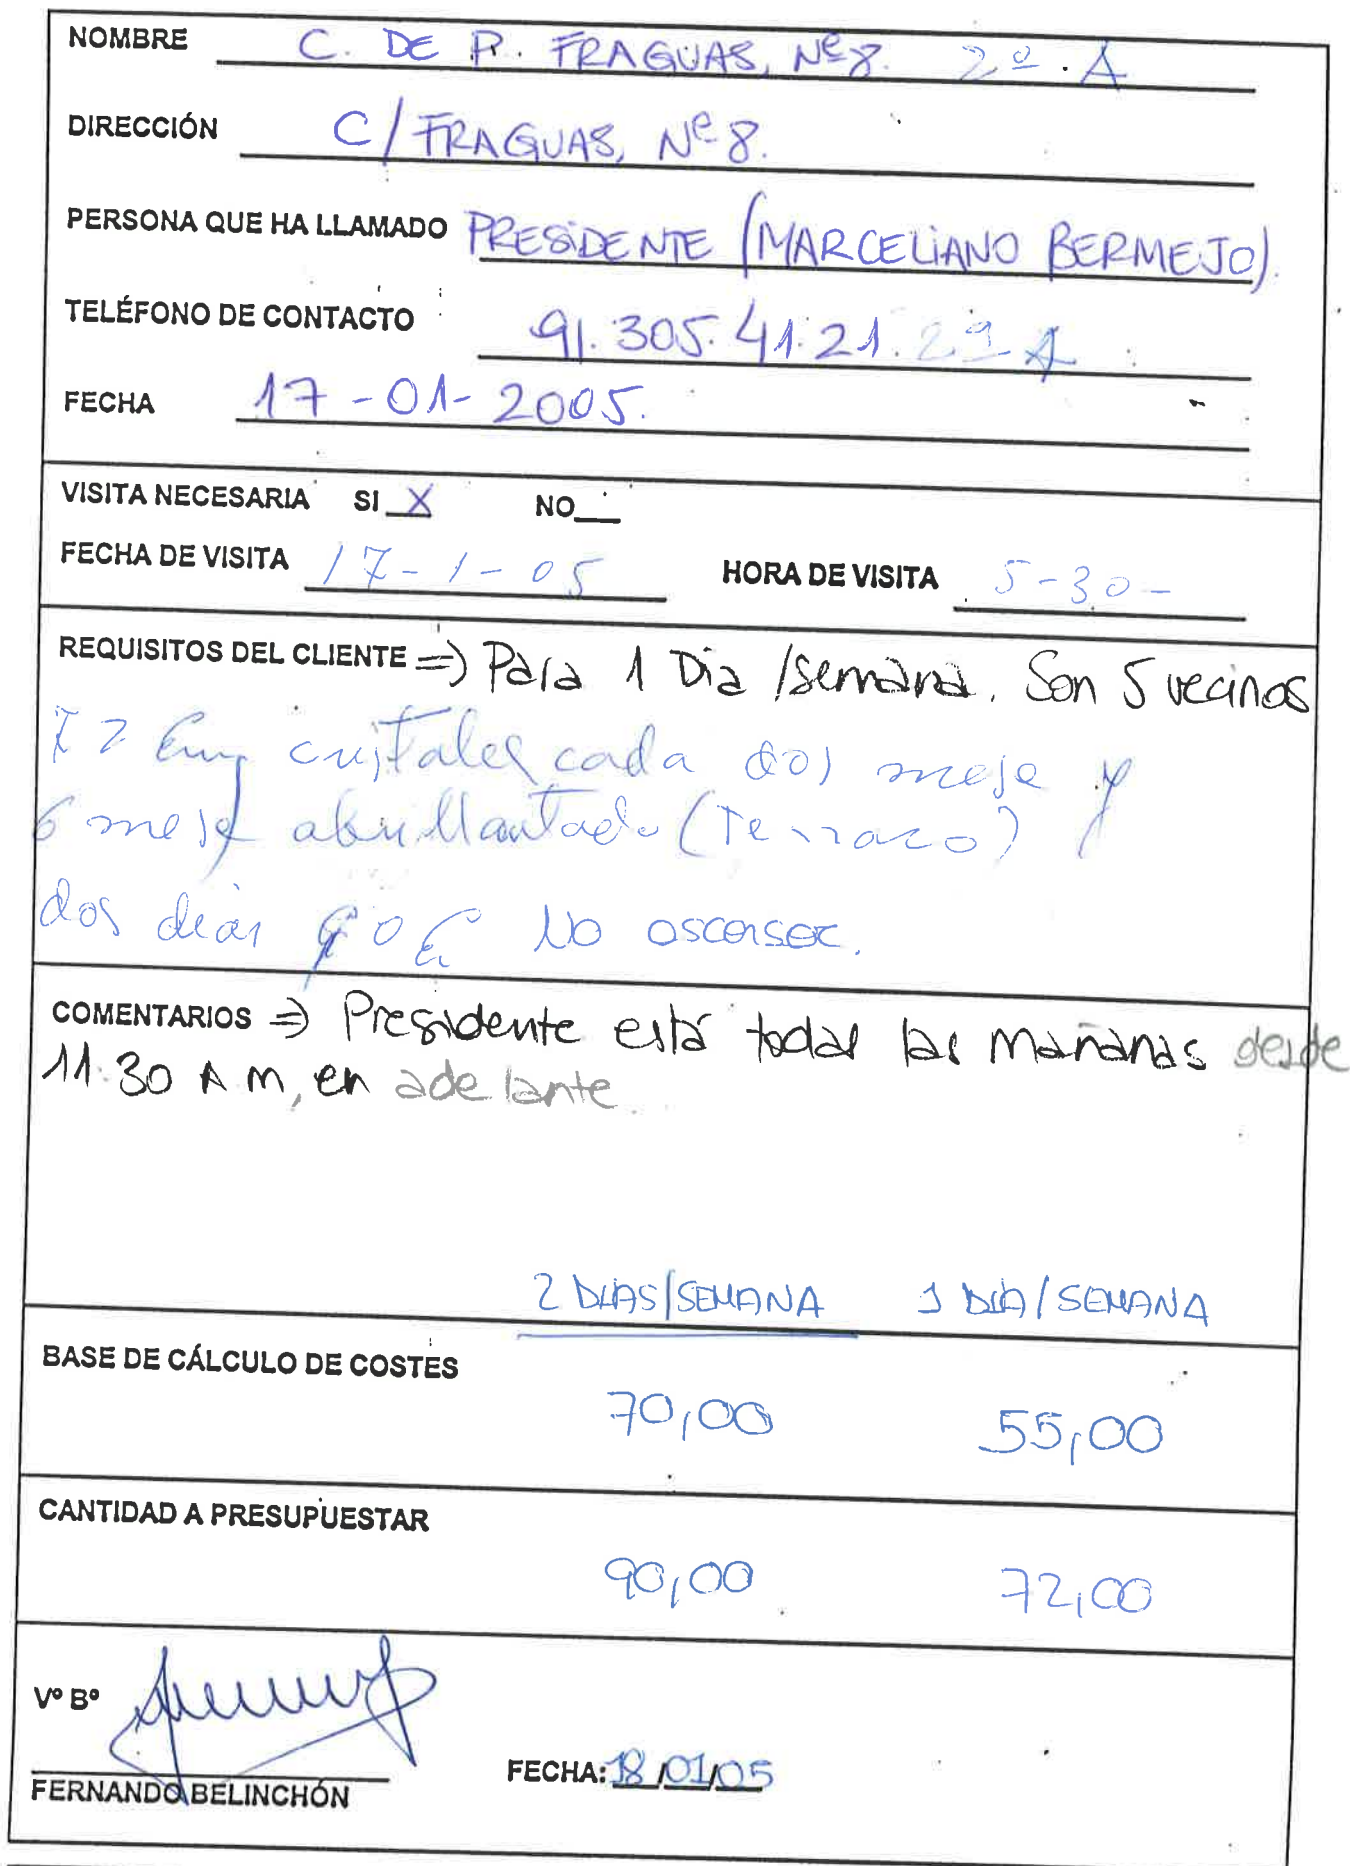 NOMBRE C. DE P. FRAGUAS, Nº 8. 2º. A
DIRECCIÓN C/ FRAGUAS, Nº 8.
PERSONA QUE HA LLAMADO PRESIDENTE (MARCELIANO BERMEJO).
TELÉFONO DE CONTACTO 91.305.41.21. 2º A
FECHA 17-01-2005.
VISITA NECESARIA SI X NO
FECHA DE VISITA 17-1-05 HORA DE VISITA 5-30-
REQUISITOS DEL CLIENTE => Para 1 Dia /semana. Son 5 vecinos
cristales cada dos mese y
6 mese abrillantado (Terrazo)
dos dias NO ascensor.
COMENTARIOS => Presidente está todas las mañanas desde
11:30 AM, en adelante
2 DIAS/SEMANA 1 DIA/SEMANA
BASE DE CÁLCULO DE COSTES
70,00 55,00
CANTIDAD A PRESUPUESTAR
90,00 72,00
Vº Bº
FERNANDO BELINCHÓN FECHA: 18/01/05